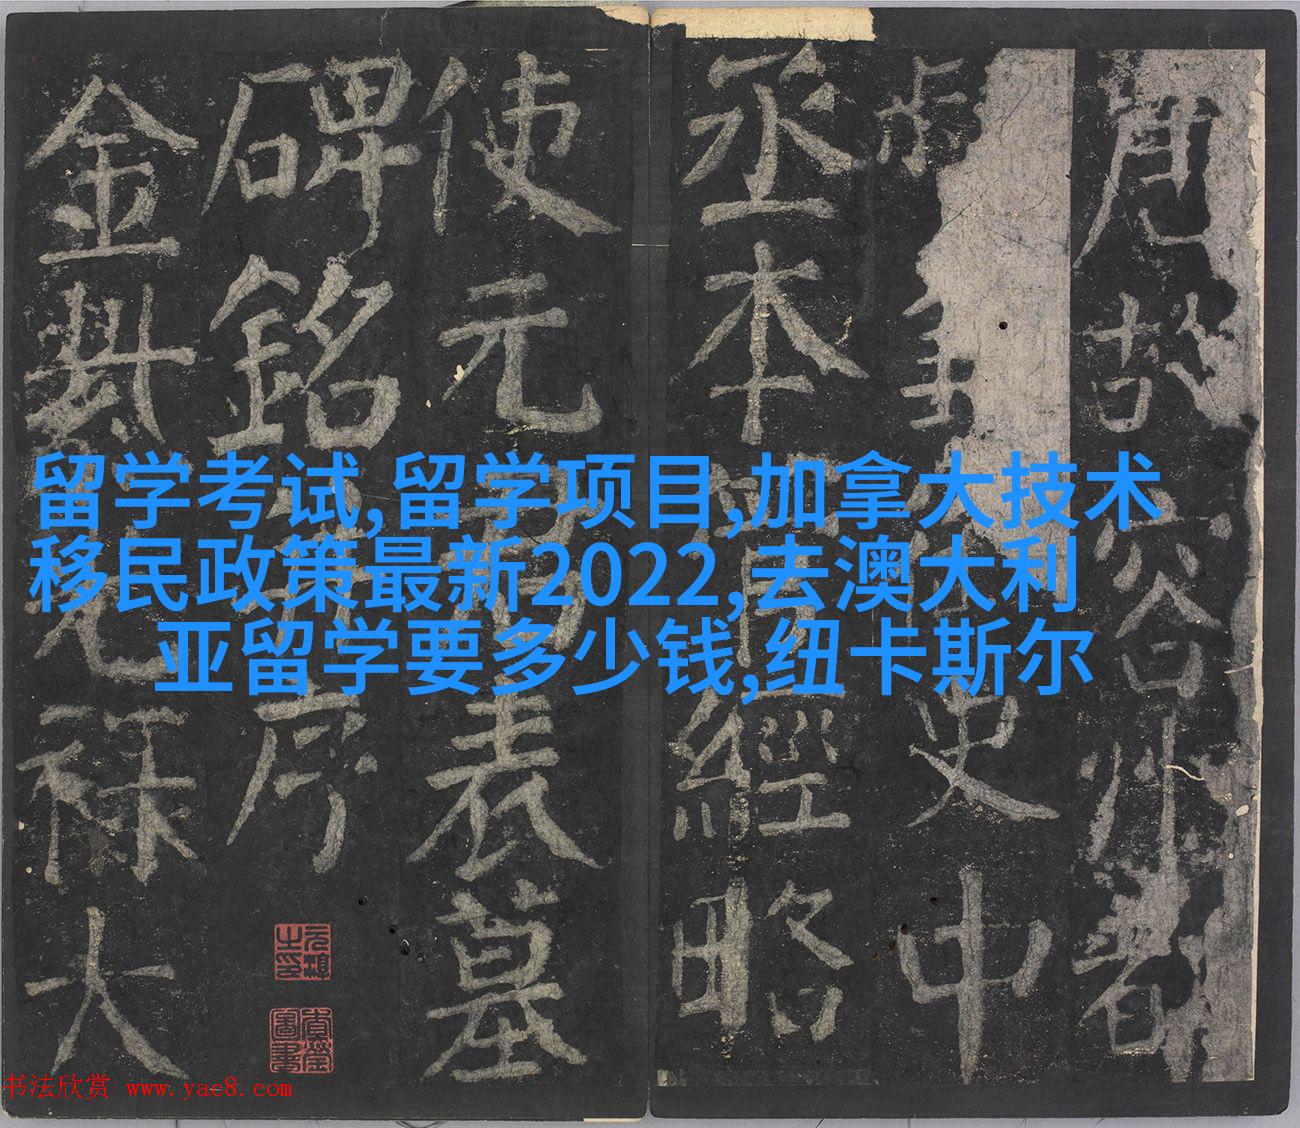 留学考试,留学项目,加拿大技术
移民政策最新2022,去澳大利
亚留学要多少钱,纽卡斯尔
唐故容州都
史中
丞本管經略
使元君表墓
碑銘并序
金紫光祿大
书法欣赏 www.yac8.com